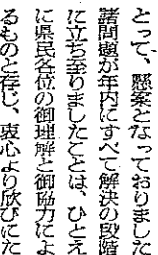 とって、懸案となっておりました
諸問題が年内にすべて解決の段階
に立ち至りましたことは、ひとえ
に県民各位の御理解と御協力によ
るものと存じ、衷心より欣びにた